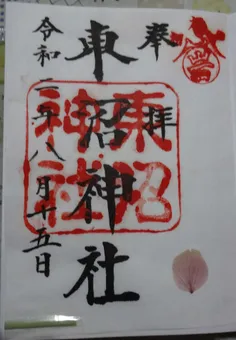 奉拝
東沼神社
令和二年八月十五日
東沼
神社